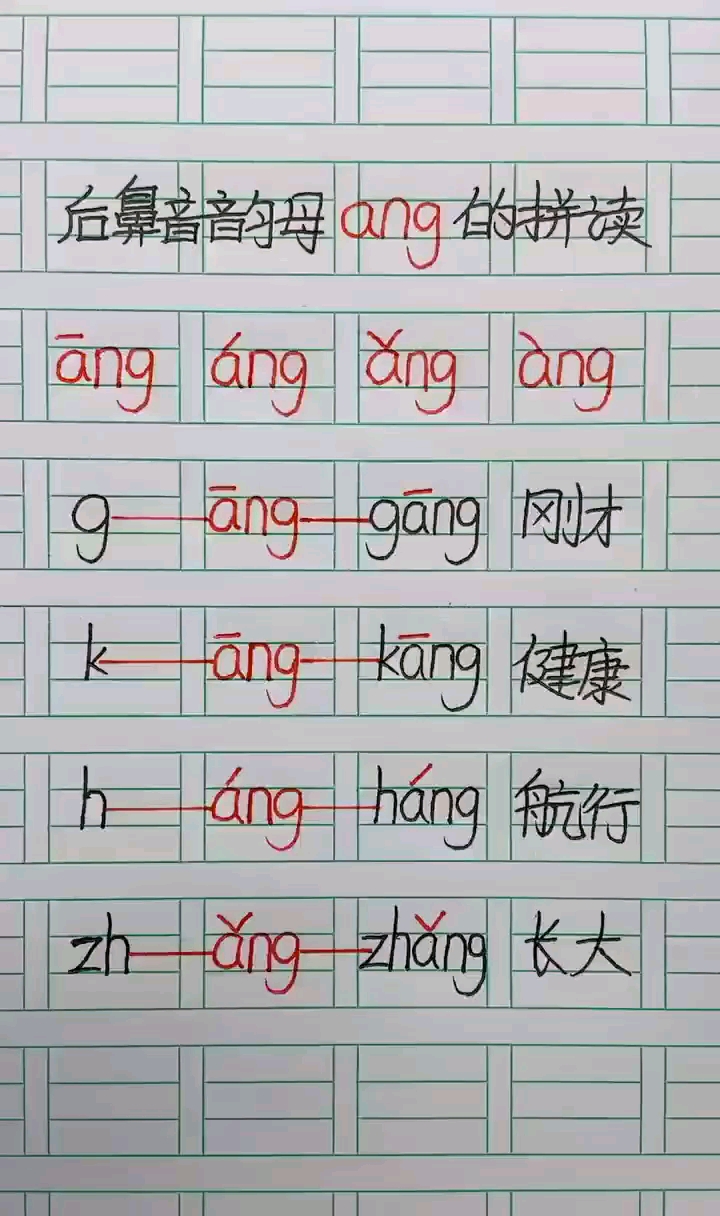 后鼻音韵母 ang 的拼读
āng áng ǎng àng
g — āng — gāng 刚才
k — āng — kāng 健康
h — áng — háng 航行
zh — ǎng — zhǎng 长大